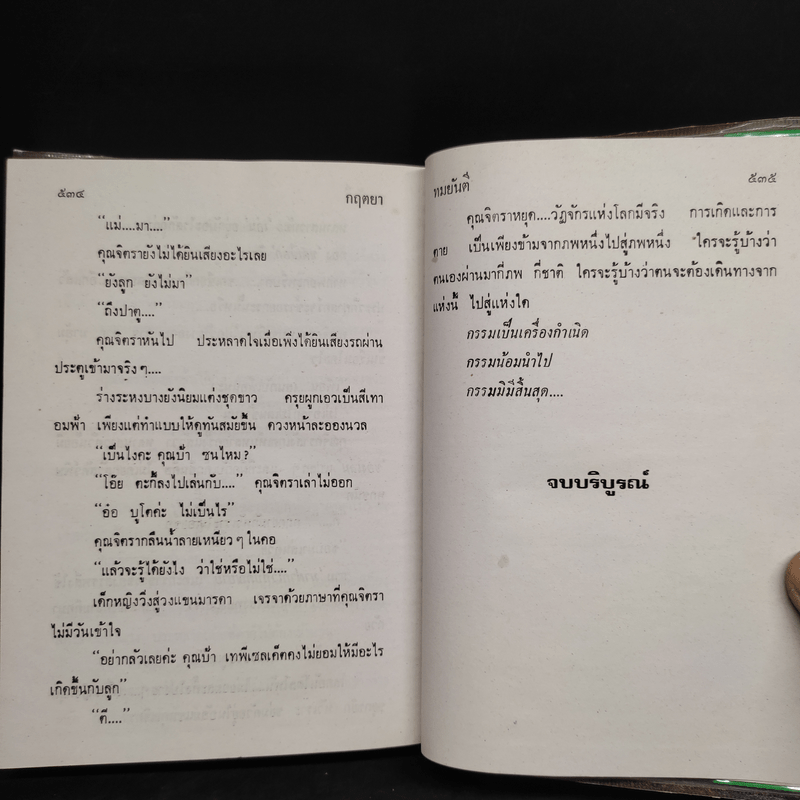 ๕๓๔
กฤตยา
“แม่....มา....”
คุณจิตรายังไม่ได้ยินเสียงอะไรเลย
“ยังลูก ยังไม่มา”
“ถึงปาตู....”
คุณจิตราหันไป ประหลาดใจเมื่อเพิ่งได้ยินเสียงรถผ่าน
ประตูเข้ามาจริง ๆ....
ร่างระหงบางยังนิยมแต่งชุดขาว ครุยผูกเอวเป็นสีเทา
อมฟ้า เพียงแต่ทำแบบให้ดูทันสมัยขึ้น ดวงหน้าละอองนวล
“เป็นไงคะ คุณป้า ซนไหม?”
“โอ๊ย ตะกี้ลงไปเล่นกับ....” คุณจิตราเล่าไม่ออก
“อ๋อ บูโตค่ะ ไม่เป็นไร”
คุณจิตรากลืนน้ำลายเหนียว ๆ ในคอ
“แล้วจะรู้ได้ยังไง ว่าใช่หรือไม่ใช่....”
เด็กหญิงวิ่งสู่วงแขนมารดา เจรจาด้วยภาษาที่คุณจิตรา
ไม่มีวันเข้าใจ
“อย่ากลัวเลยค่ะ คุณป้า เทพีเซลเค็ตคงไม่ยอมให้มีอะไร
เกิดขึ้นกับลูก”
“ดี....”
ทมยันตี
๕๓๕
คุณจิตราหยุด....วัฏจักรแห่งโลกมีจริง การเกิดและการ
ตาย เป็นเพียงข้ามจากภพหนึ่งไปสู่ภพหนึ่ง ใครจะรู้บ้างว่า
ตนเองผ่านมากี่ภพ กี่ชาติ ใครจะรู้บ้างว่าตนจะต้องเดินทางจาก
แห่งนี้ ไปสู่แห่งใด
กรรมเป็นเครื่องกำเนิด
กรรมน้อมนำไป
กรรมมิมีสิ้นสุด....
จบบริบูรณ์